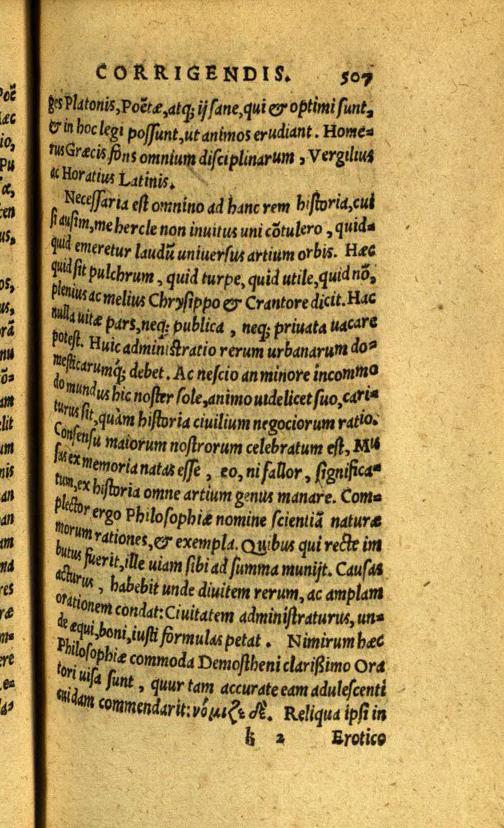 CORRIGENDIS. 507
ges Platonis, Poëtæ, atq; ij sane, qui & optimi sunt,
& in hoc legi possunt, ut animos erudiant. Home-
rus Græcis fons omnium disciplinarum, Vergilius
ac Horatius Latinis.
Necessaria est omnino ad hanc rem historia, cui
si ausim, me hercle non inuitus uni cōtulero, quid-
quid emeretur laudū uniuersus artium orbis. Hæc
quid sit pulchrum, quid turpe, quid utile, quid nō,
plenius ac melius Chrysippo & Crantore dicit. Hac
nulla uitæ pars, neq; publica, neq; priuata uacare
potest. Huic administratio rerum urbanarum do-
mesticarumq; debet. Ac nescio an minore incommo
do mundus hic noster sole, animo uidelicet suo, cari-
turus sit, quàm historia ciuilium negociorum ratio.
Consensu maiorum nostrorum celebratum est, Mu
sas ex memoria natas esse, eo, ni fallor, significa-
tum, ex historia omne artium genus manare. Com-
plector ergo Philosophiæ nomine scientiā naturæ
morum rationes, & exempla. Quibus qui recte im
butus fuerit, ille uiam sibi ad summa munijt. Causas
acturus, habebit unde diuitem rerum, ac amplam
orationem condat: Ciuitatem administraturus, un-
de æqui, boni, iusti formulas petat. Nimirum hæc
Philosophiæ commoda Demostheni clarißimo Ora
tori uisa sunt, quur tam accurate eam adulescenti
cuidam commendarit: νόμιζε δὲ. Reliqua ipsi in
k 2 Erotico